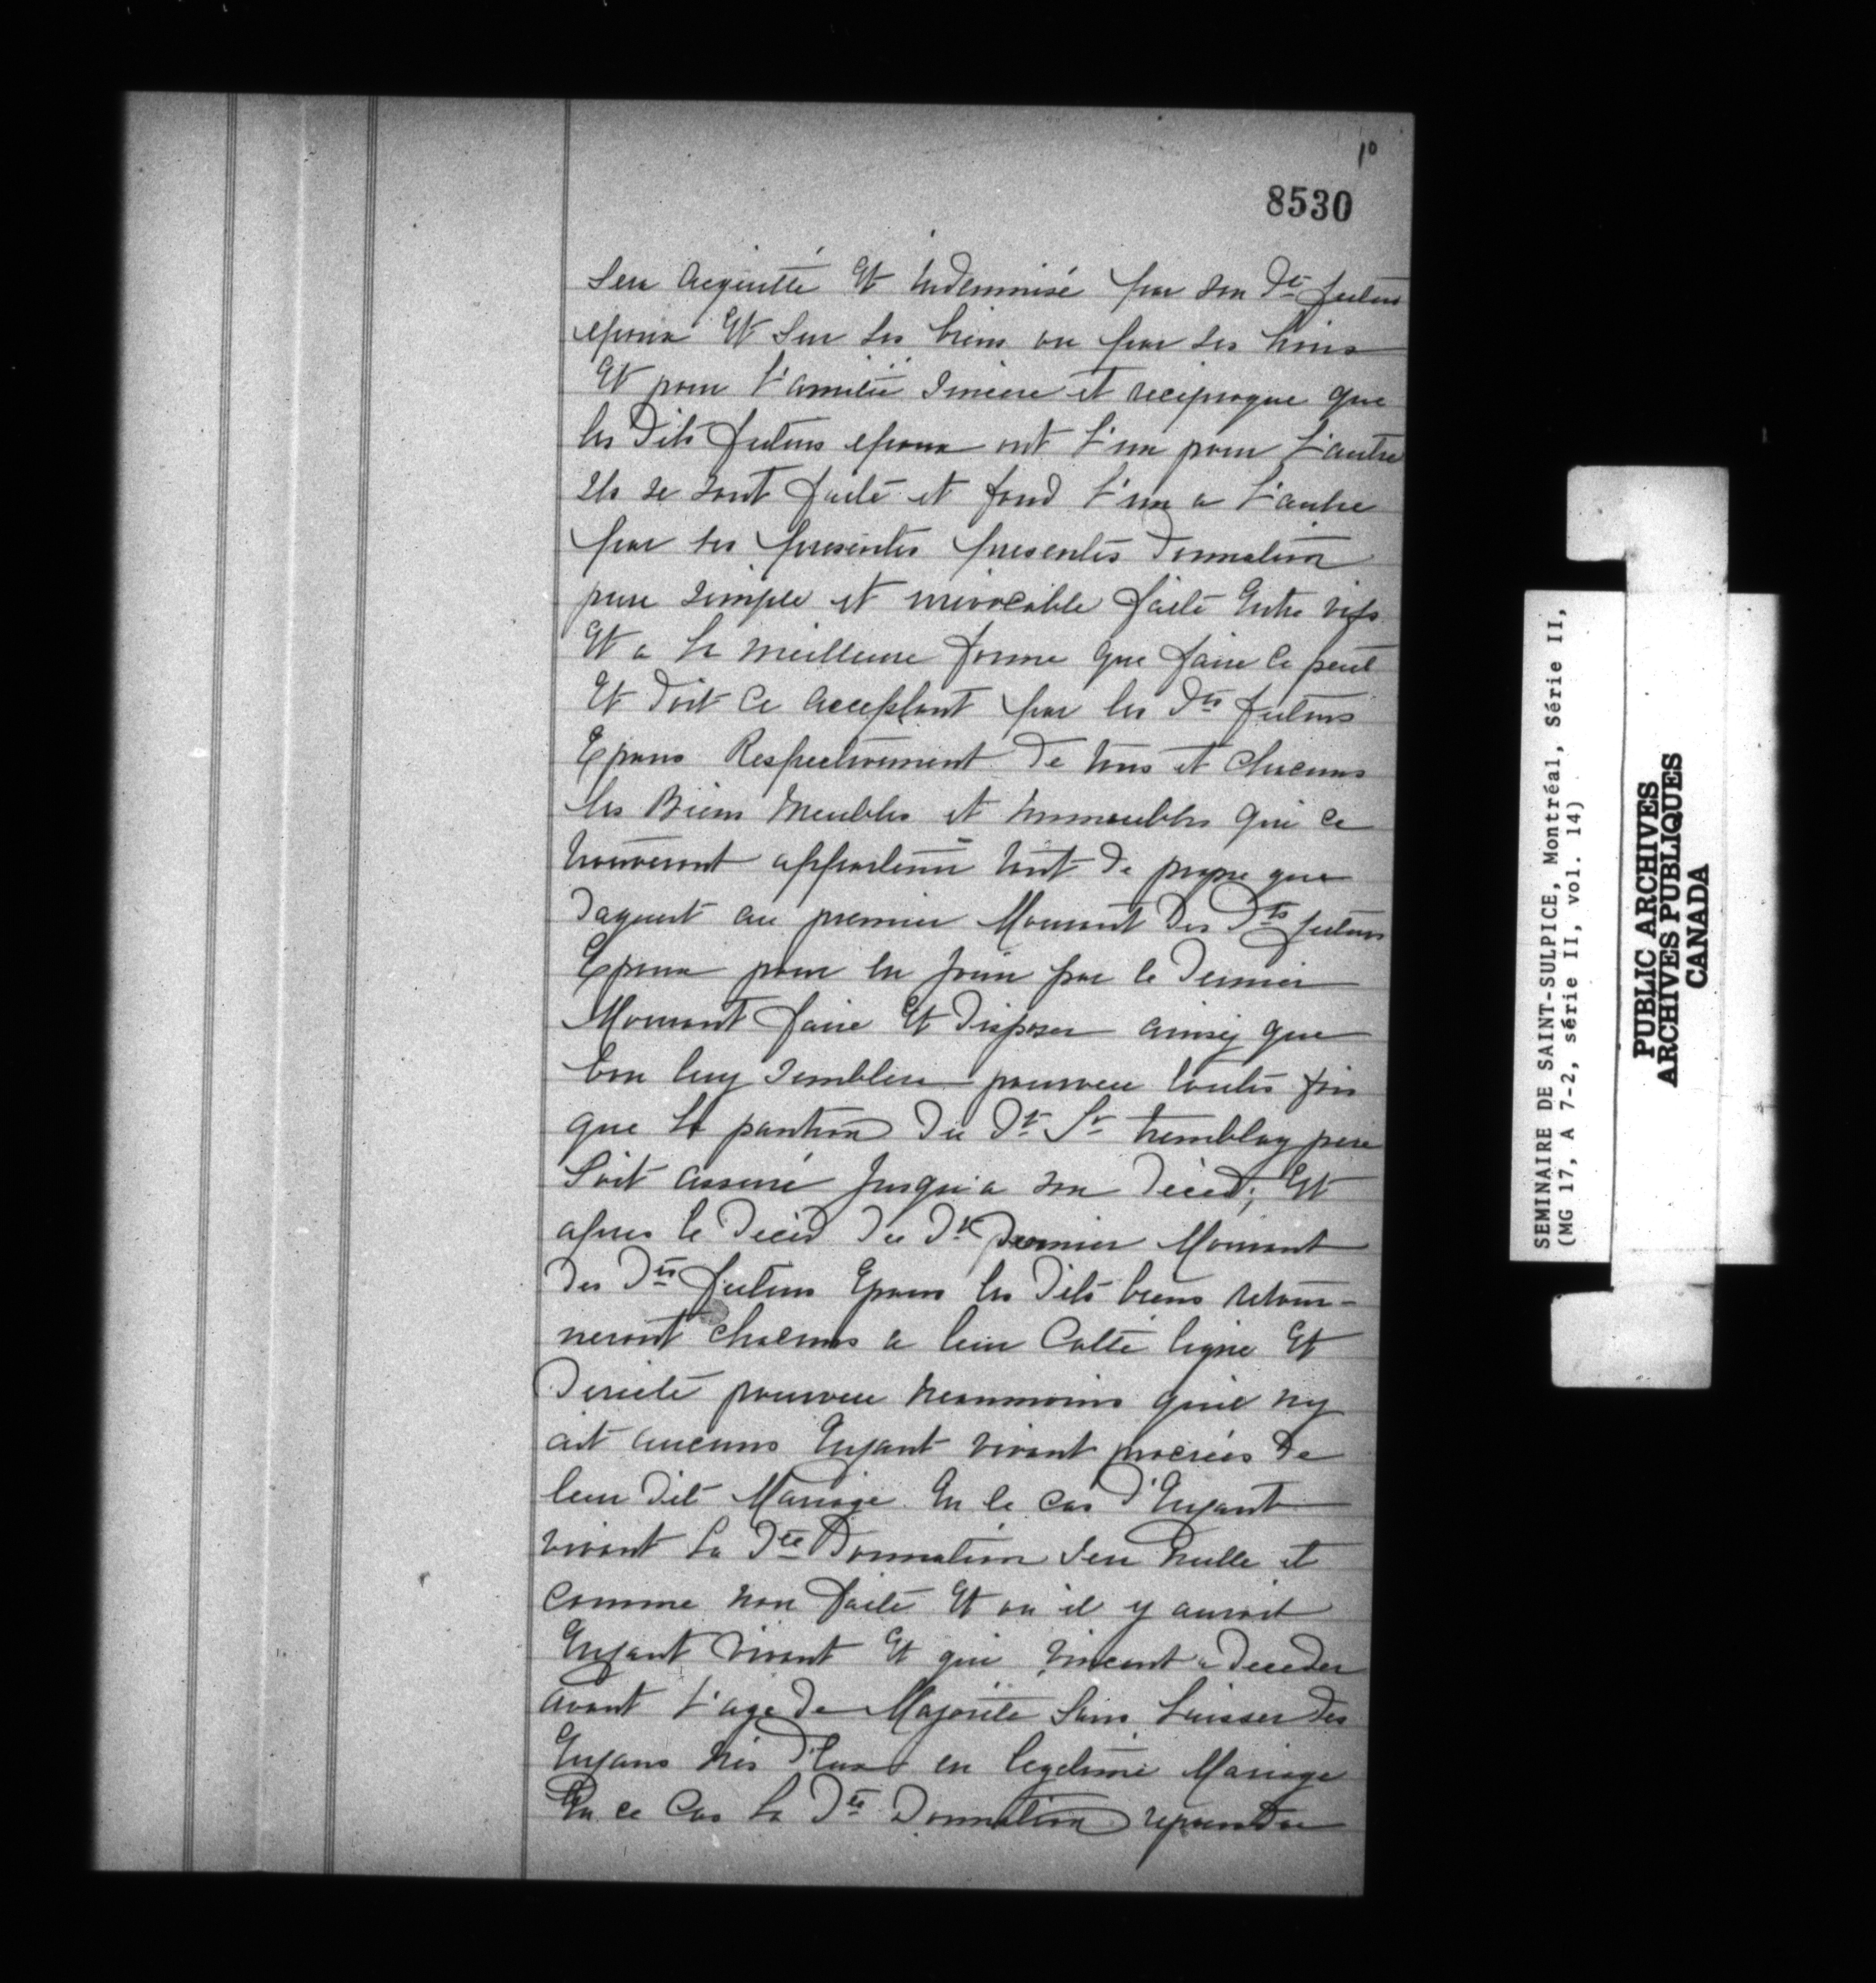 10
8530
Sera Acquitté Et Indemnisé par son Dte futurs
epoux Et Sur ses biens ou par ses hoirs
Et pour l'amitié Sincere et reciproque que
les Dits futurs epoux ont l'un pour l'autre
Ils se sont faite et fond l'un a l'autre
par ses presentes presentes Donnation
pure Simple et irrevocable faite Entre vifs
Et a la meilleure forme que faire ce peut
Et doit Ce Acceptant par les Dts futurs
Epoux Respectivement De tous et chacuns
les Biens Meubles et Immeubles qui ce
trouveront appartenir tant de propre que
Daquest au premier Mourant des Dts futurs
Epoux pour en jouir par le Dernier
Mourant faire Et Disposer ainsy que
bon luy Semblera pourveu toutes fois
que la pantion Du Dt Sr tremblay pere
Soit assuré Jusqu'a son Décéd; Et
apres le Décéd Du Dt Dernier Mourant
Des Dts futurs Epoux les Dits biens retour-
neront chacuns a leur Cotté ligne Et
Directe pourveu neanmoins quil ny
ait aucuns Enfant vivant procréés De
leur Dit Mariage En le cas d'Enfant
vivant la Dte Donnation Sera Nulle et
comme non faite Et ou il y auroit
Enfant vivant Et qui Vincent a Deceder
avant l'age de Majorité Sans Laisser Des
Enfans nés D'Eux en legetime Mariage
En ce Cas la Dte Donnation reprendra
SEMINAIRE DE SAINT-SULPICE, Montréal, Série II,
(MG 17, A 7-2, série II, vol. 14)
PUBLIC ARCHIVES
ARCHIVES PUBLIQUES
CANADA